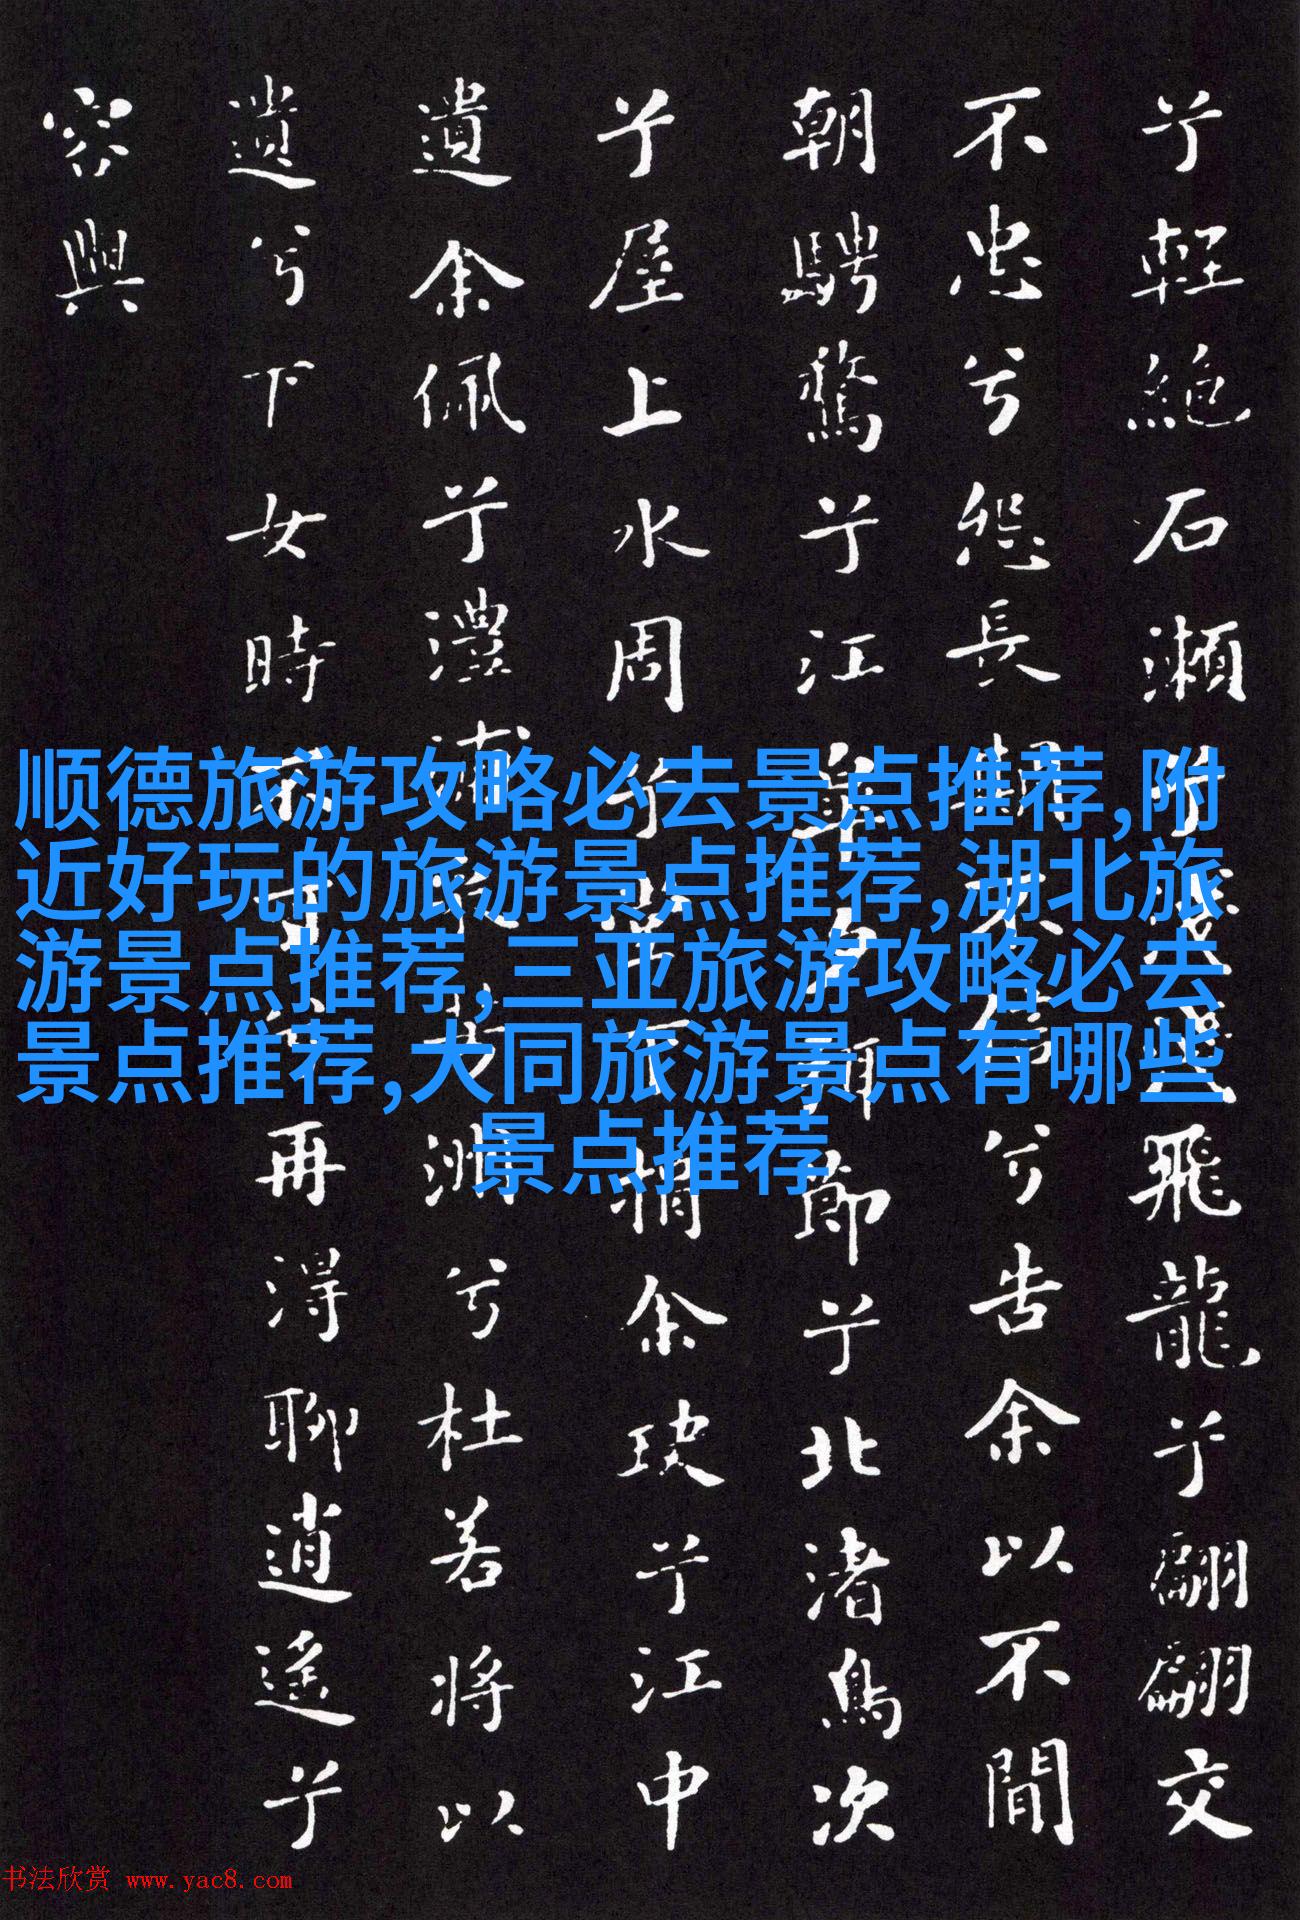 兮輕絕石瀨兮淺淺飛龍兮翩翩交
不忠兮怨長期不信兮告余以不閒
朝騁騖兮江皋夕弭節兮北渚鳥次
兮屋上水周兮堂下捐余玦兮江中
遺余佩兮澧浦采芳洲兮杜若將以
遺兮下女時不可兮再得聊逍遙兮
容與
顺德旅游攻略必去景点推荐,附
近好玩的旅游景点推荐,湖北旅
游景点推荐,三亚旅游攻略必去
景点推荐,大同旅游景点有哪些
景点推荐
书法欣赏 www.yac8.com